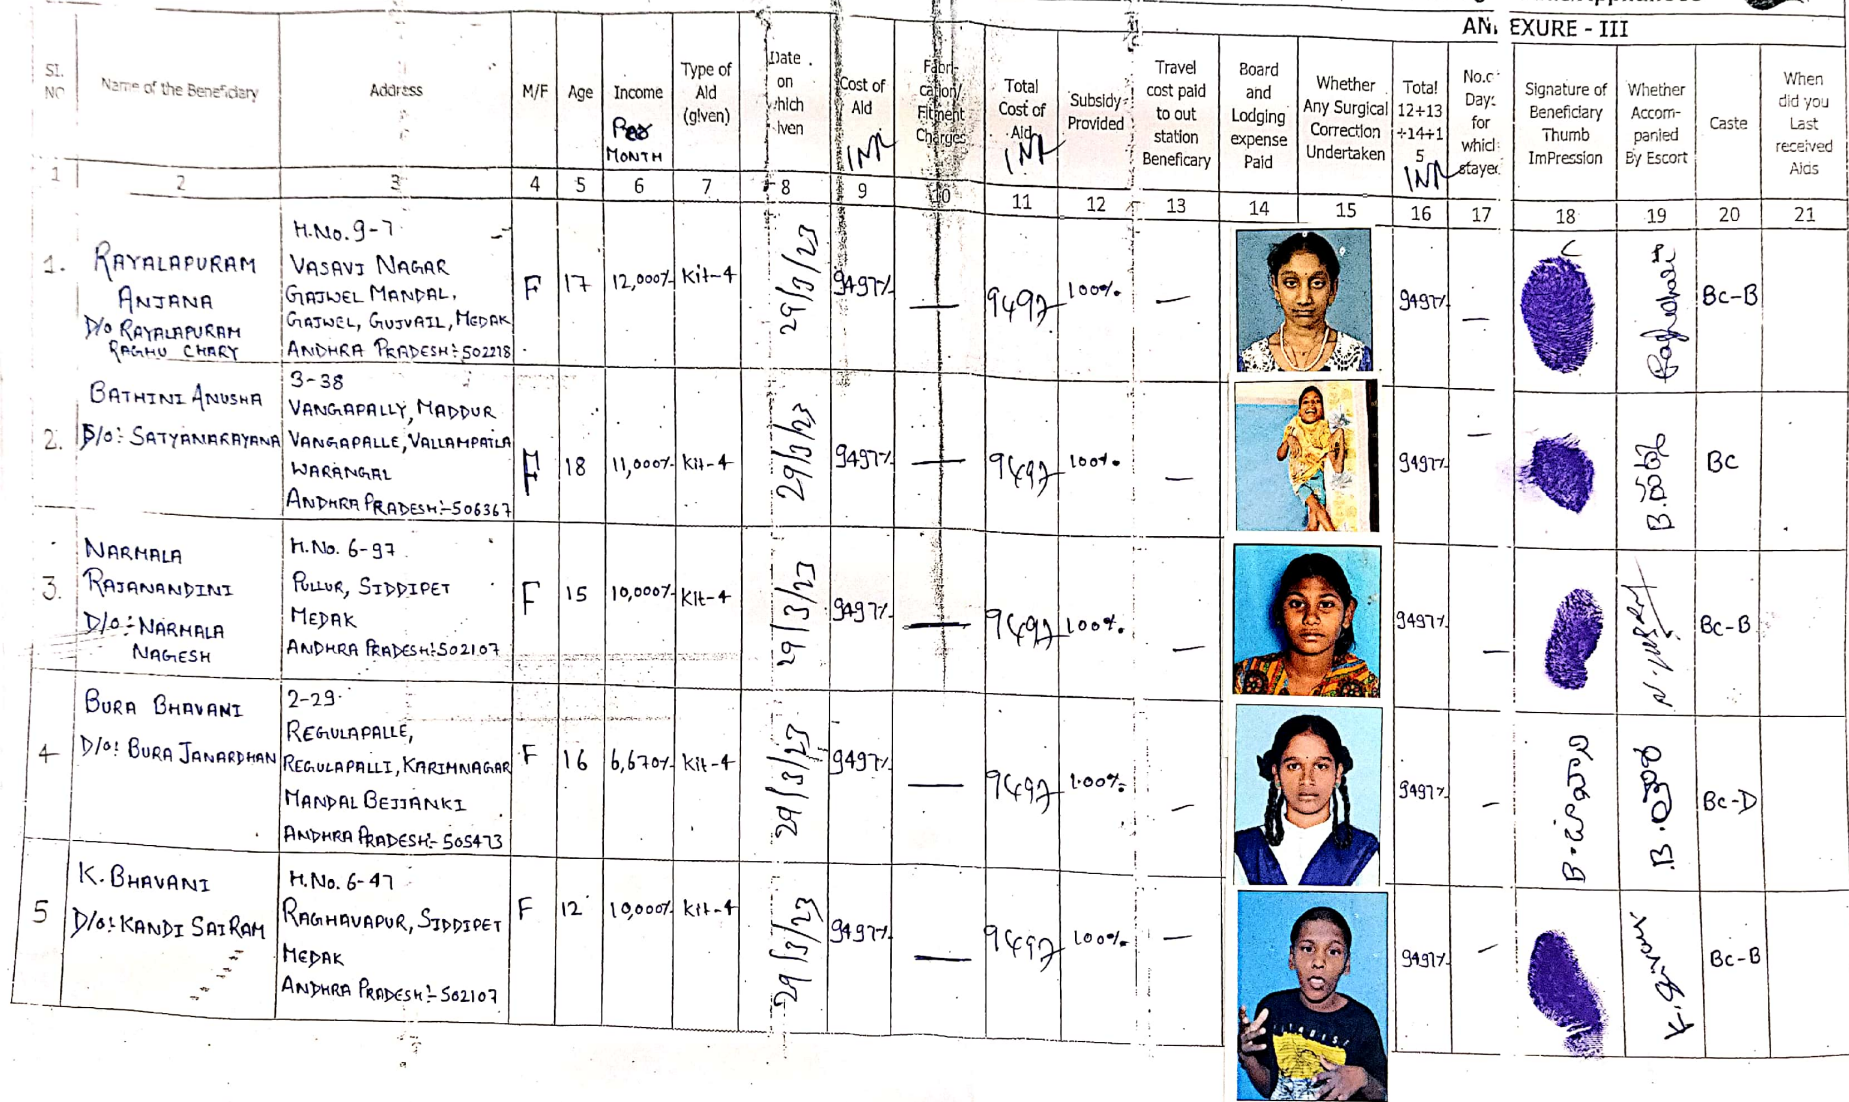 ANNEXURE - III
SI. NO
Name of the Beneficiary
Address
M/F
Age
Income
Per
MONTH
Type of
Aid
(given)
Date
on
which
iven
Cost of
Aid
INR
Fabri-
cation/
Fitment
Charges
Total
Cost of
Aid
INR
Subsidy
Provided
Travel
cost paid
to out
station
Beneficary
Board
and
Lodging
expense
Paid
Whether
Any Surgical
Correction
Undertaken
Total
12+13
+14+1
5
INR
No.of
Days
for
which
stayed
Signature of
Beneficiary
Thumb
ImPression
Whether
Accom-
panied
By Escort
Caste
When
did you
Last
received
Aids
1 2 3 4 5 6 7 8 9 10 11 12 13 14 15 16 17 18 19 20 21
1.
RAYALAPURAM
ANJANA
D/O RAYALAPURAM
RAGHU CHARY
H.No. 9-7
VASAVI NAGAR
GAJWEL MANDAL,
GAJWEL, GUJVAIL, MEDAK
ANDHRA PRADESH:- 502278
F 17 12,000/- Kit-4 29/3/23 9497/- — 9497 100% — 9497/- — BC-B
2.
BATHINI ANUSHA
D/O:- SATYANARAYANA
3-38
VANGAPALLY, MADDUR
VANGAPALLE, VALLAMPATLA
WARANGAL
ANDHRA PRADESH:-506367
F 18 11,000/- Kit-4 29/3/23 9497/- — 9497 100% — 9497/- — BC
3.
NARMALA
RAJANANDINI
D/O:- NARMALA
NAGESH
H.No. 6-97
PULLUR, SIDDIPET
MEDAK
ANDHRA PRADESH:-502107
F 15 10,000/- Kit-4 29/3/23 9497/- — 9497 100% — 9497/- — BC-B
4
BURA BHAVANI
D/O: BURA JANARDHAN
2-29
REGULAPALLE,
REGULAPALLI, KARIMNAGAR
MANDAL BEJJANKI
ANDHRA PRADESH:- 505473
F 16 6,670/- Kit-4 29/3/23 9497/- — 9497 100% — 9497/- — BC-D
5
K. BHAVANI
D/O: KANDI SAI RAM
H.No. 6-47
RAGHAVAPUR, SIDDIPET
MEDAK
ANDHRA PRADESH:- 502107
F 12 10,000/- Kit-4 29/3/23 9497/- — 9497 100% — 9497/- — BC-B